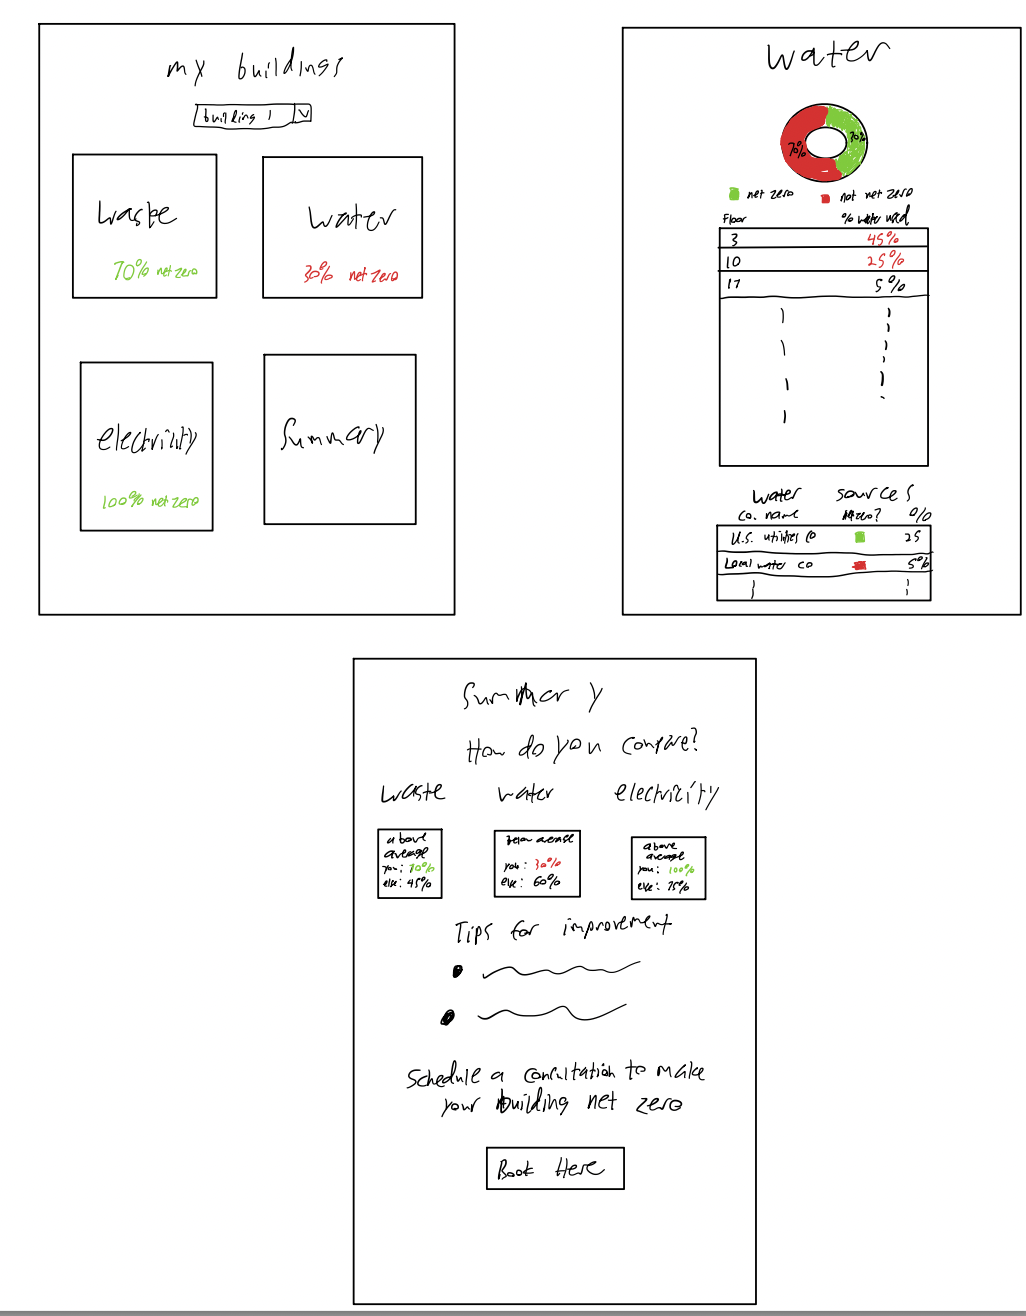 my buildings
building 1
waste
70% net zero
water
30% net zero
electricity
100% net zero
Summary
water
70%
70%
net zero
not net zero
Floor % water used
3 45%
10 25%
17 5%
water sources
Co. name %
U.S. utilities co 25
Local water co 5%
Summary
How do you compare?
waste water electricity
above
average
you: 70%
else: 45%
below average
you: 30%
else: 60%
above
average
you: 100%
else: 75%
Tips for improvement
Schedule a consultation to make
your building net zero
Book Here